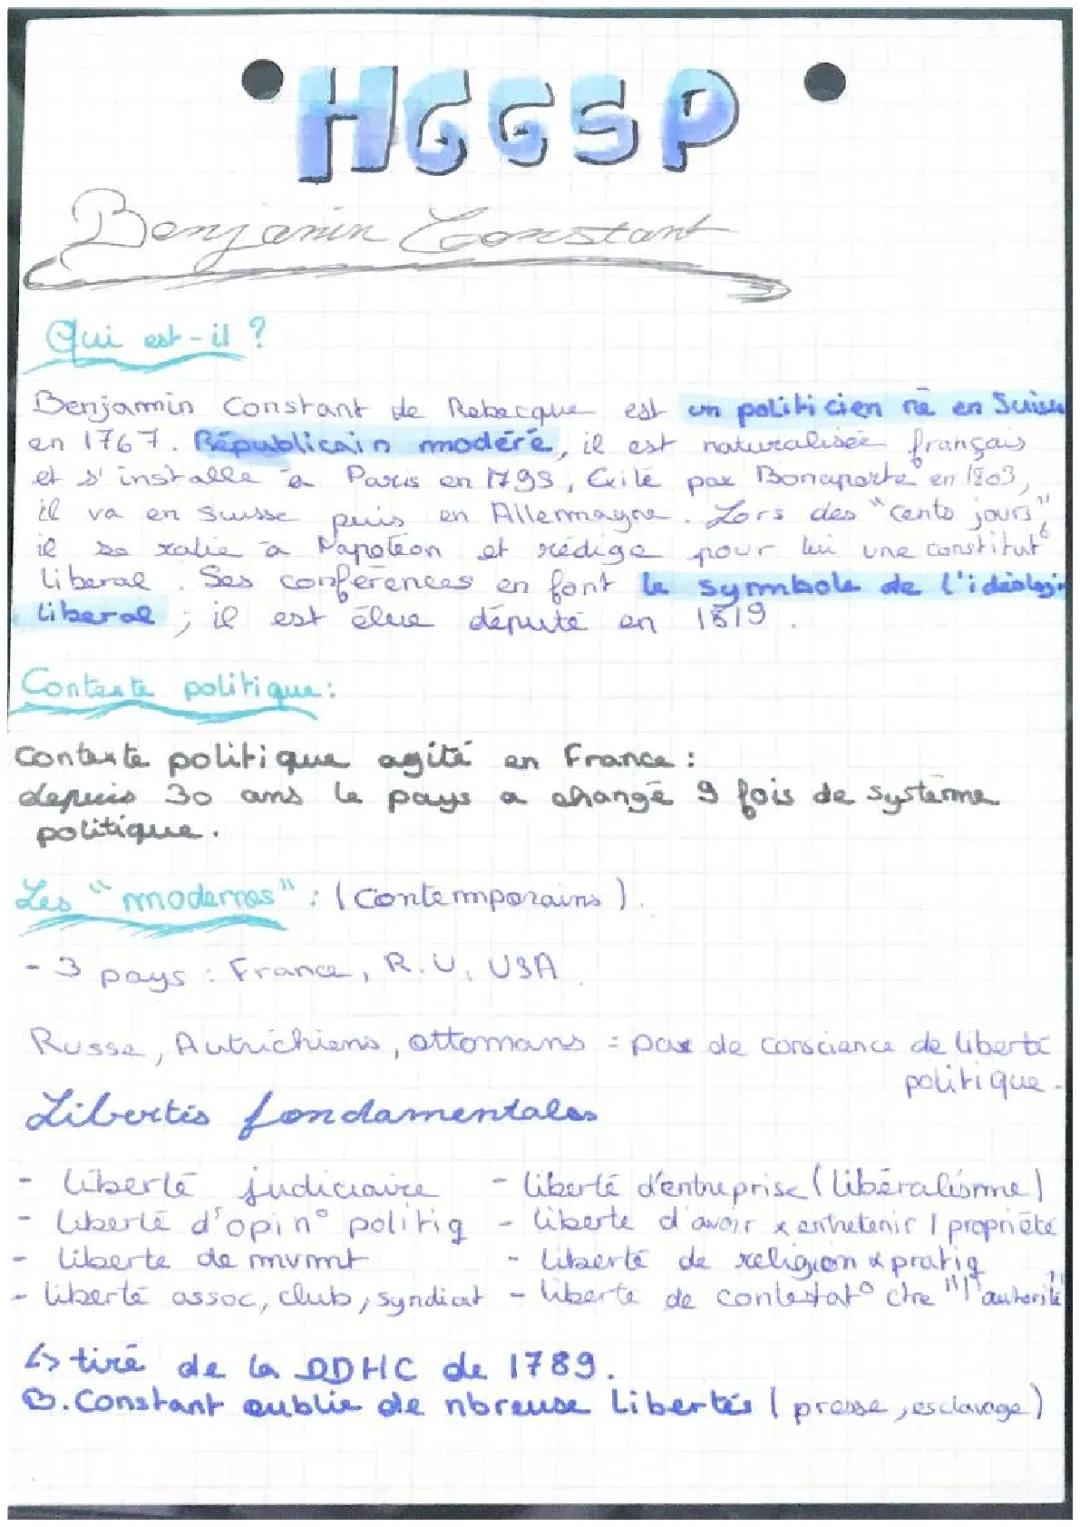 HGGSP
Benjamin Constant
Qui est-il ?
Benjamin Constant de Rebecque est un politicien né en Suisse
en 1767. Républicain modéré, il est naturalisée français
et s'installe à Paris en 1795, Exilé par Bonaparte en 1803,
il va en suisse puis en Allermagne. Lors des "cents jours",
il se ralie à Napoléon et rédige pour lui une constitut°
liberal. Ses conférences en font le symbole de l'idéologie
liberal ; il est élue député en 1819.
Contexte politique :
Contexte politique agité en France :
depuis 30 ans le pays a changé 9 fois de système
politique.
Les "modernes" : (Contemporains).
- 3 pays : France, R.U, USA
Russe, Autrichiens, ottomans = pas de conscience de liberté
politique.
Libertés fondamentales
- liberté judiciaire - liberté d'entreprise (libéralisme)
- liberté d'opin° politiq - liberte d'avoir & entretenir 1 propriété
- liberte de mvmt - liberté de religion & pratiq
- liberté assoc, club, syndicat - liberte de contestat° ctre "l'autorité"
↳ tiré de la DDHC de 1789.
B. Constant oublie de nbreuse libertés (presse, esclavage)